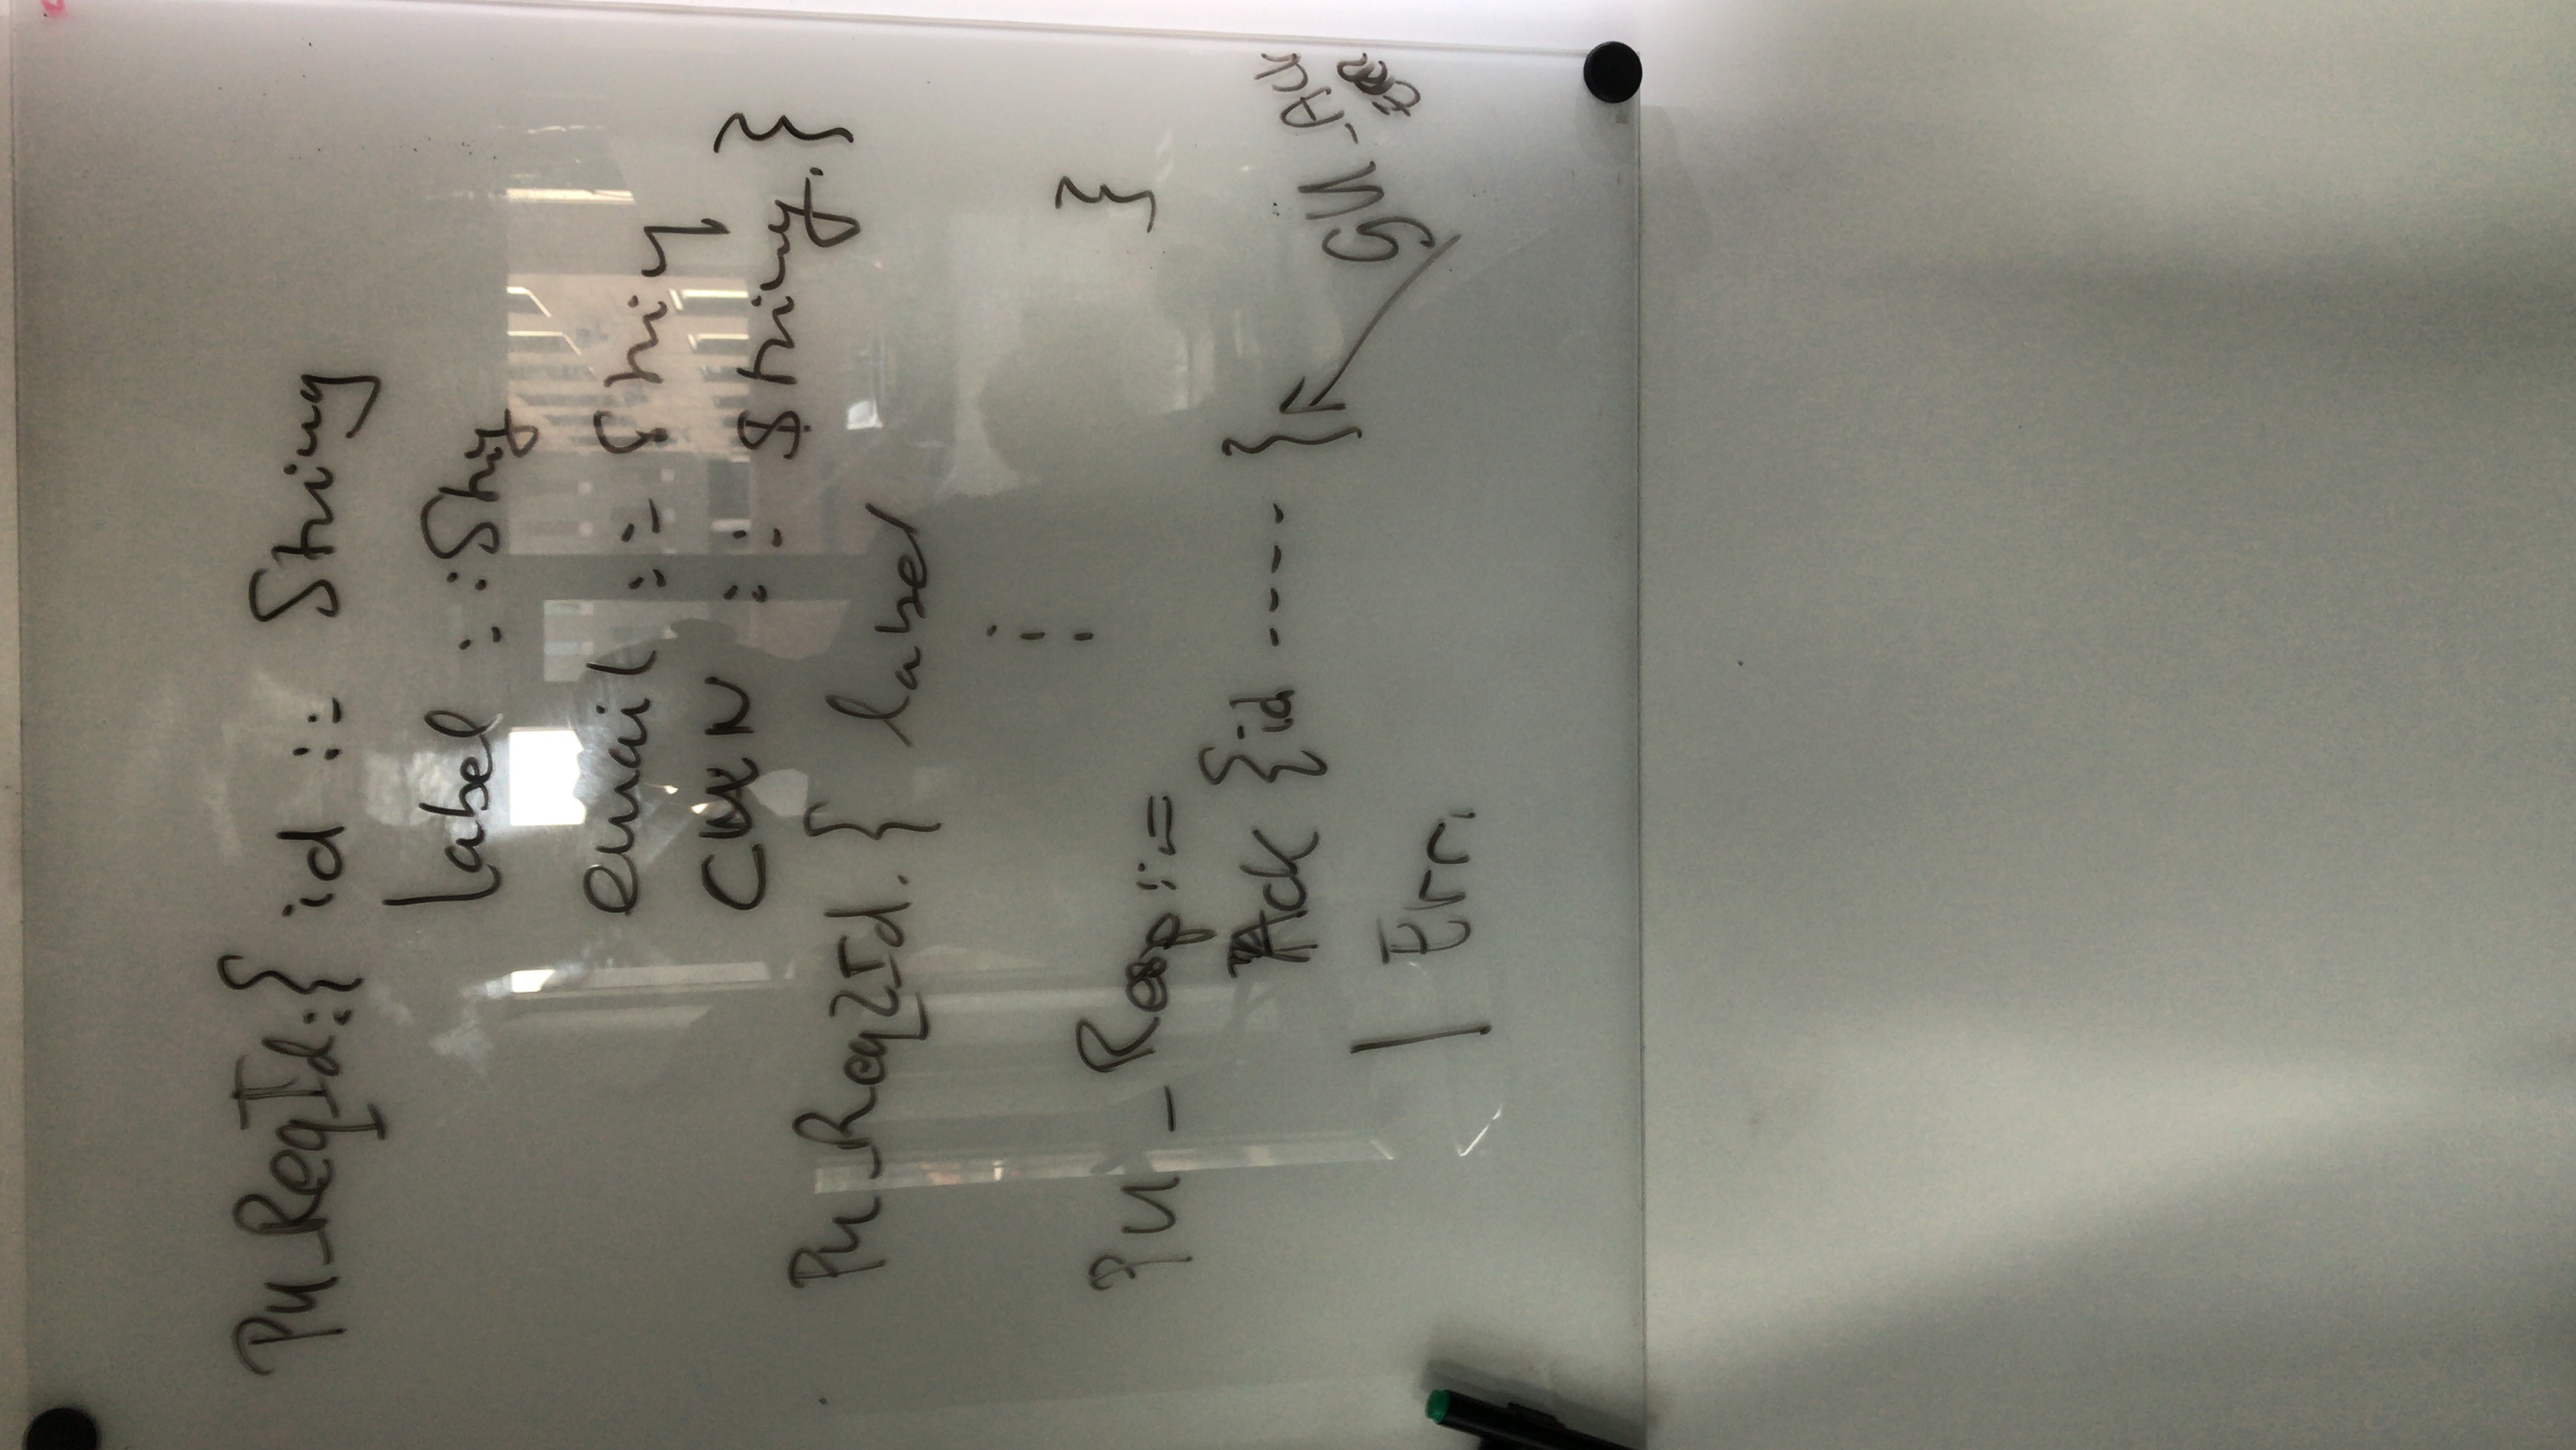 Pu_ReqId:{ id :: String
label :: String
email :: String
:: String. }
Pu_Req2Id. { label
⋮
}
Pu_Resp ::=
Ack {id ---- }
GU_Ack
ERR
| Err.